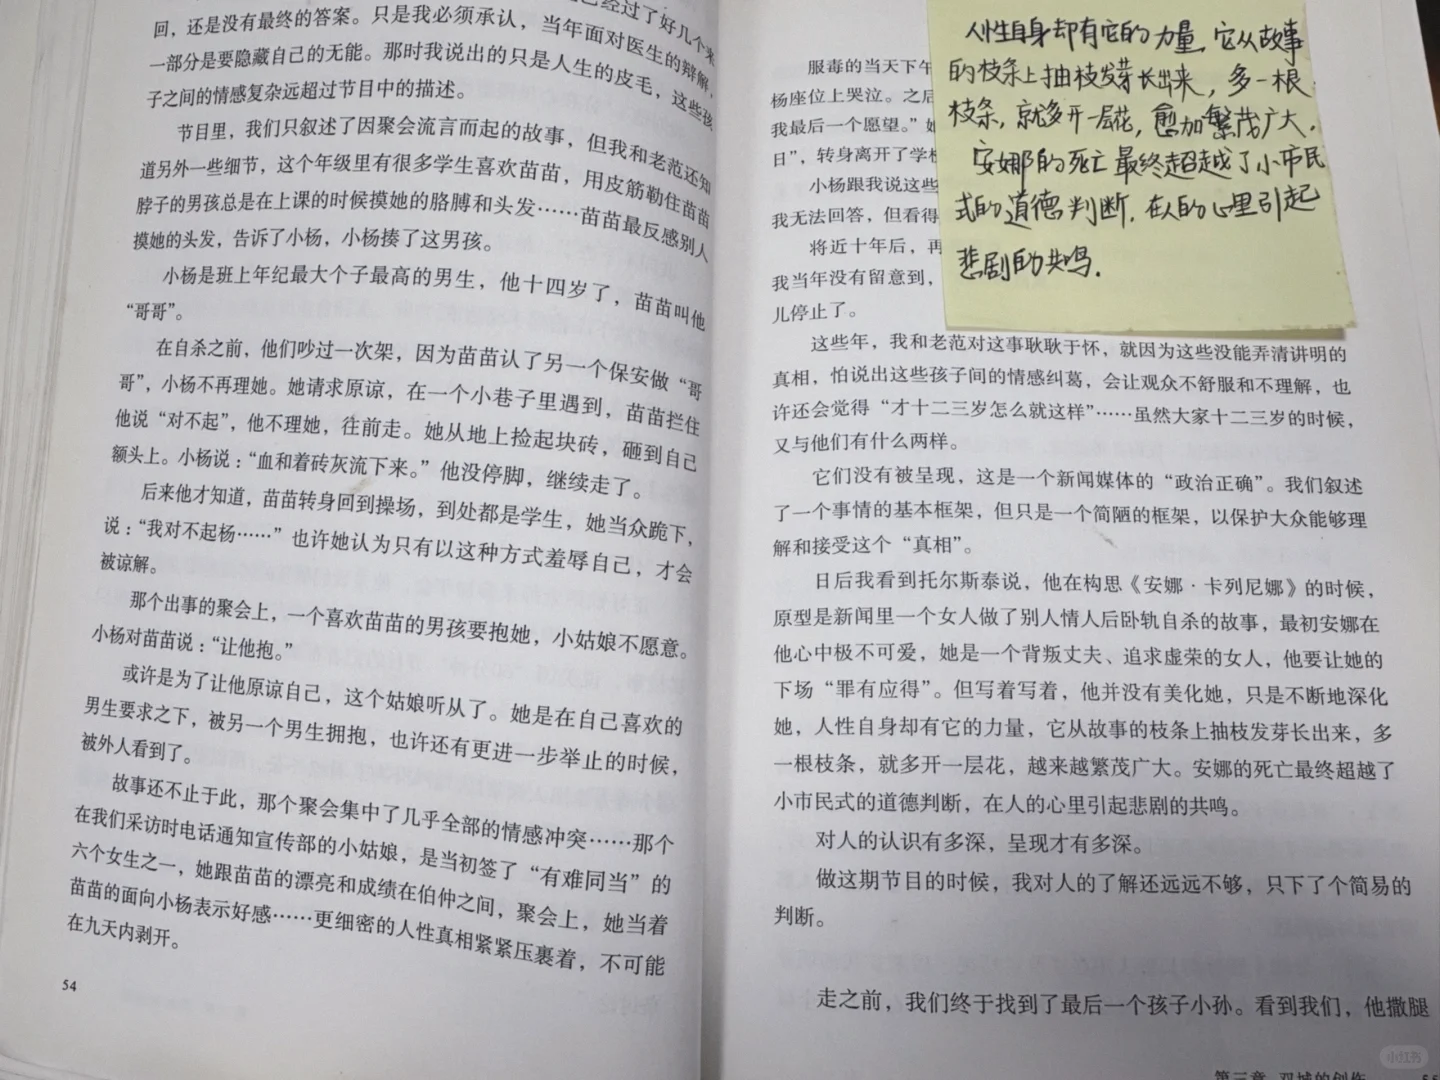 已经过了好几个来
回，还是没有最终的答案。只是我必须承认，当年面对医生的辩解，
一部分是要隐藏自己的无能。那时我说出的只是人生的皮毛，这些孩
子之间的情感复杂远超过节目中的描述。
节目里，我们只叙述了因聚会流言而起的故事，但我和老范还知
道另外一些细节，这个年级里有很多学生喜欢苗苗，用皮筋勒住苗苗
脖子的男孩总是在上课的时候摸她的胳膊和头发……苗苗最反感别人
摸她的头发，告诉了小杨，小杨揍了这男孩。
小杨是班上年纪最大个子最高的男生，他十四岁了，苗苗叫他
“哥哥”。
在自杀之前，他们吵过一次架，因为苗苗认了另一个保安做“哥
哥”，小杨不再理她。她请求原谅，在一个小巷子里遇到，苗苗拦住
他说“对不起”，他不理她，往前走。她从地上捡起块砖，砸到自己
额头上。小杨说：“血和着砖灰流下来。”他没停脚，继续走了。
后来他才知道，苗苗转身回到操场，到处都是学生，她当众跪下，
说：“我对不起杨……”也许她认为只有以这种方式羞辱自己，才会
被谅解。
那个出事的聚会上，一个喜欢苗苗的男孩要抱她，小姑娘不愿意。
小杨对苗苗说：“让他抱。”
或许是为了让他原谅自己，这个姑娘听从了。她是在自己喜欢的
男生要求之下，被另一个男生拥抱，也许还有更进一步举止的时候，
被外人看到了。
故事还不止于此，那个聚会集中了几乎全部的情感冲突……那个
在我们采访时电话通知宣传部的小姑娘，是当初签了“有难同当”的
六个女生之一，她跟苗苗的漂亮和成绩在伯仲之间，聚会上，她当着
苗苗的面向小杨表示好感……更细密的人性真相紧紧压裹着，不可能
在九天内剥开。
54
人性自身却有它的力量，它从故事
的枝条上抽枝发芽长出来，多一根
枝条，就多开一层花，愈加繁茂广大。
安娜的死亡最终超越了小市民
式的道德判断，在人的心里引起
悲剧的共鸣。
服毒的当天下午
杨座位上哭泣。之后
我最后一个愿望。”她
日”，转身离开了学校
小杨跟我说这些
我无法回答，但看得
将近十年后，再
我当年没有留意到，
儿停止了。
这些年，我和老范对这事耿耿于怀，就因为这些没能弄清讲明的
真相，怕说出这些孩子间的情感纠葛，会让观众不舒服和不理解，也
许还会觉得“才十二三岁怎么就这样”……虽然大家十二三岁的时候，
又与他们有什么两样。
它们没有被呈现，这是一个新闻媒体的“政治正确”。我们叙述
了一个事情的基本框架，但只是一个简陋的框架，以保护大众能够理
解和接受这个“真相”。
日后我看到托尔斯泰说，他在构思《安娜·卡列尼娜》的时候，
原型是新闻里一个女人做了别人情人后卧轨自杀的故事，最初安娜在
他心中极不可爱，她是一个背叛丈夫、追求虚荣的女人，他要让她的
下场“罪有应得”。但写着写着，他并没有美化她，只是不断地深化
她，人性自身却有它的力量，它从故事的枝条上抽枝发芽长出来，多
一根枝条，就多开一层花，越来越繁茂广大。安娜的死亡最终超越了
小市民式的道德判断，在人的心里引起悲剧的共鸣。
对人的认识有多深，呈现才有多深。
做这期节目的时候，我对人的了解还远远不够，只下了个简易的
判断。
走之前，我们终于找到了最后一个孩子小孙。看到我们，他撒腿
第三章 双城的创伤
小红书